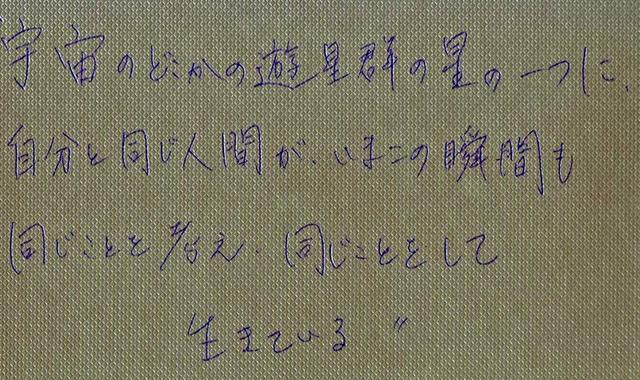 宇宙のどこかの遊星群の星の一つに、
自分と同じ人間が、いまこの瞬間も
同じことを考え、同じことをして
生きている〃